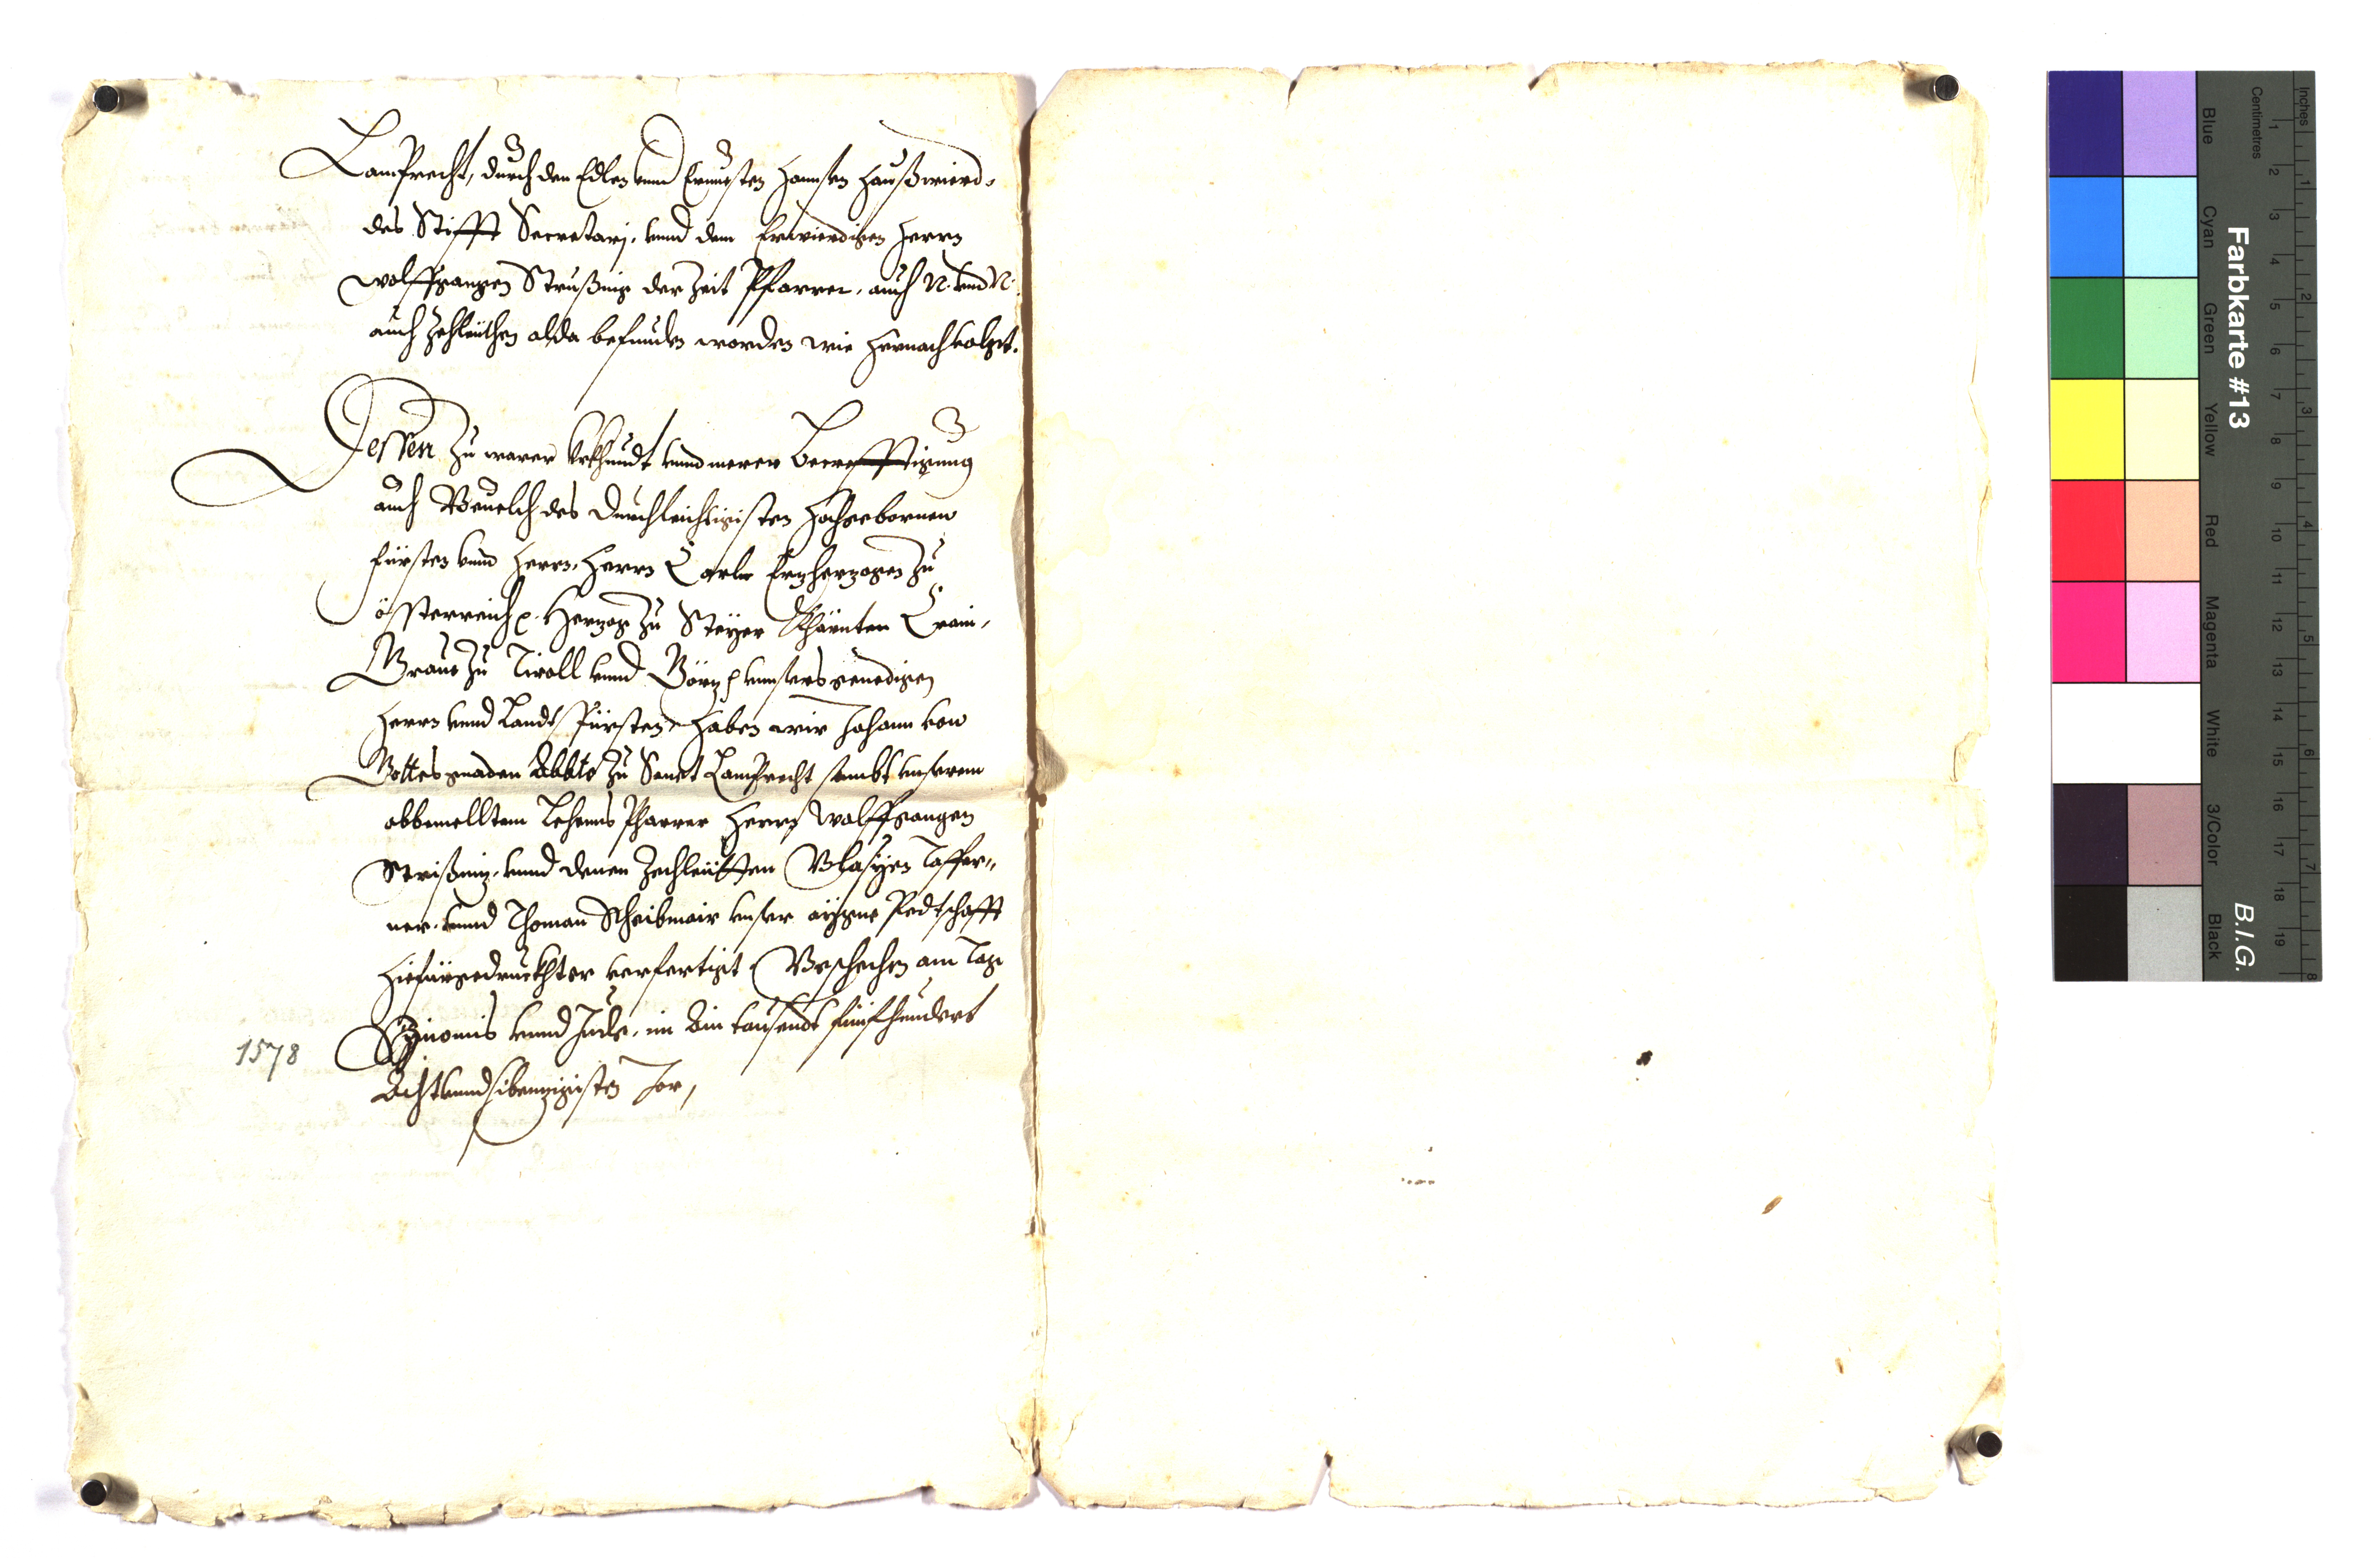 Lamprecht, durch den Edlen vnnd Ernuesten Hannsen Haußwierd,
des Stifft Secretarj, vnnd dem Erwierdigen Herrn
Wolffgangen Strußnig der Zeit Pfarrer, auch N. vnd N.
auch Zechleüthen alda befunden worden wie hernach volgt.
Dessen zu warer Vrkhundt vnnd merer Becrefftigung
auch Beuelch des Durchleichtigisten Hochgebornen
Fürsten vnnd Herrn, Herrn Carln Erzherzogen zu
össterreich p. Herzog zu Steÿer Khärnten Crain,
Graue zu Tiroll vnnd Görz p vnnsers genedigen
Herrn vnnd Landtsfürsten, haben wir Johann von
Gottes gnaden Abbte zu Sanct Lamprecht sambt vnserem
obbemelltem Lehenns Pharrer Herrn Wolffgangen
Strißnig, vnnd denen Zechleütten Blasÿen Taffer„
ner, vnnd Thoman Scheibmair vnser aÿgne Pedtschafft
hiefürgedruckhter verfertigt Beschechen am Tag
Sÿmonis vnnd Jude, im Ain tausendt fünfhundert
Achtvnndsibennzigisten Jor,
1578
Farbkarte #13
B.I.G.
Inches
Centimetres
Blue
Cyan
Green
Yellow
Red
Magenta
White
3/Color
Black
1 2 3 4 5 6 7 8 9 10 11 12 13 14 15 16 17 18 19
1 2 3 4 5 6 7 8